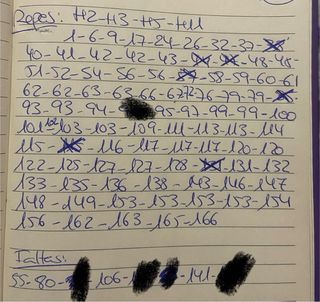 Zopes: H2-H3-H5-H11
1-6-9-17-24-26-32-37-
40-41-42-42-43-48-48-
51-52-54-56-56-58-59-60-61
62-62-63-63-66-67-76-79-79-
93-93-94-95-97-99-99-100
101-103-103-109-111-113-113-114
115-116-117-117-117-120-120
122-125-127-127-128-131-132
133-135-136-138-143-146-147
148-149-153-153-153-153-154
156-162-163-165-166
Faltas:
55-80-106-141-